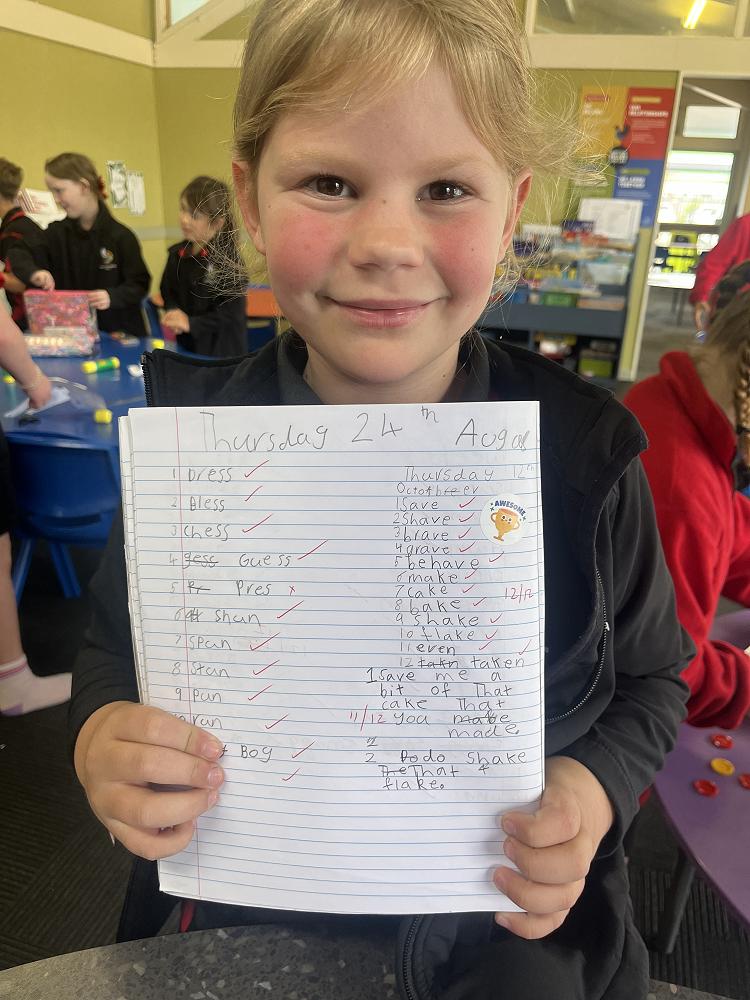 Thursday 24th Augas
1 Dress
2 Bless
3 chess
4 gess Guess
5 Pres
6 shan
7 span
8 stan
9 pan
ran
Bog
Thursday 12th
Octotbreer
1 Save
2 Shave
3 brave
4 grave
5 behave
6 make
7 cake 12/12
8 bake
9 shake
10 flake
11 even
12 takn taken
AWESOME
1 Save me a
bit of That
cake That
11/12 you mabe
made.
2 do shake
The That
flake.